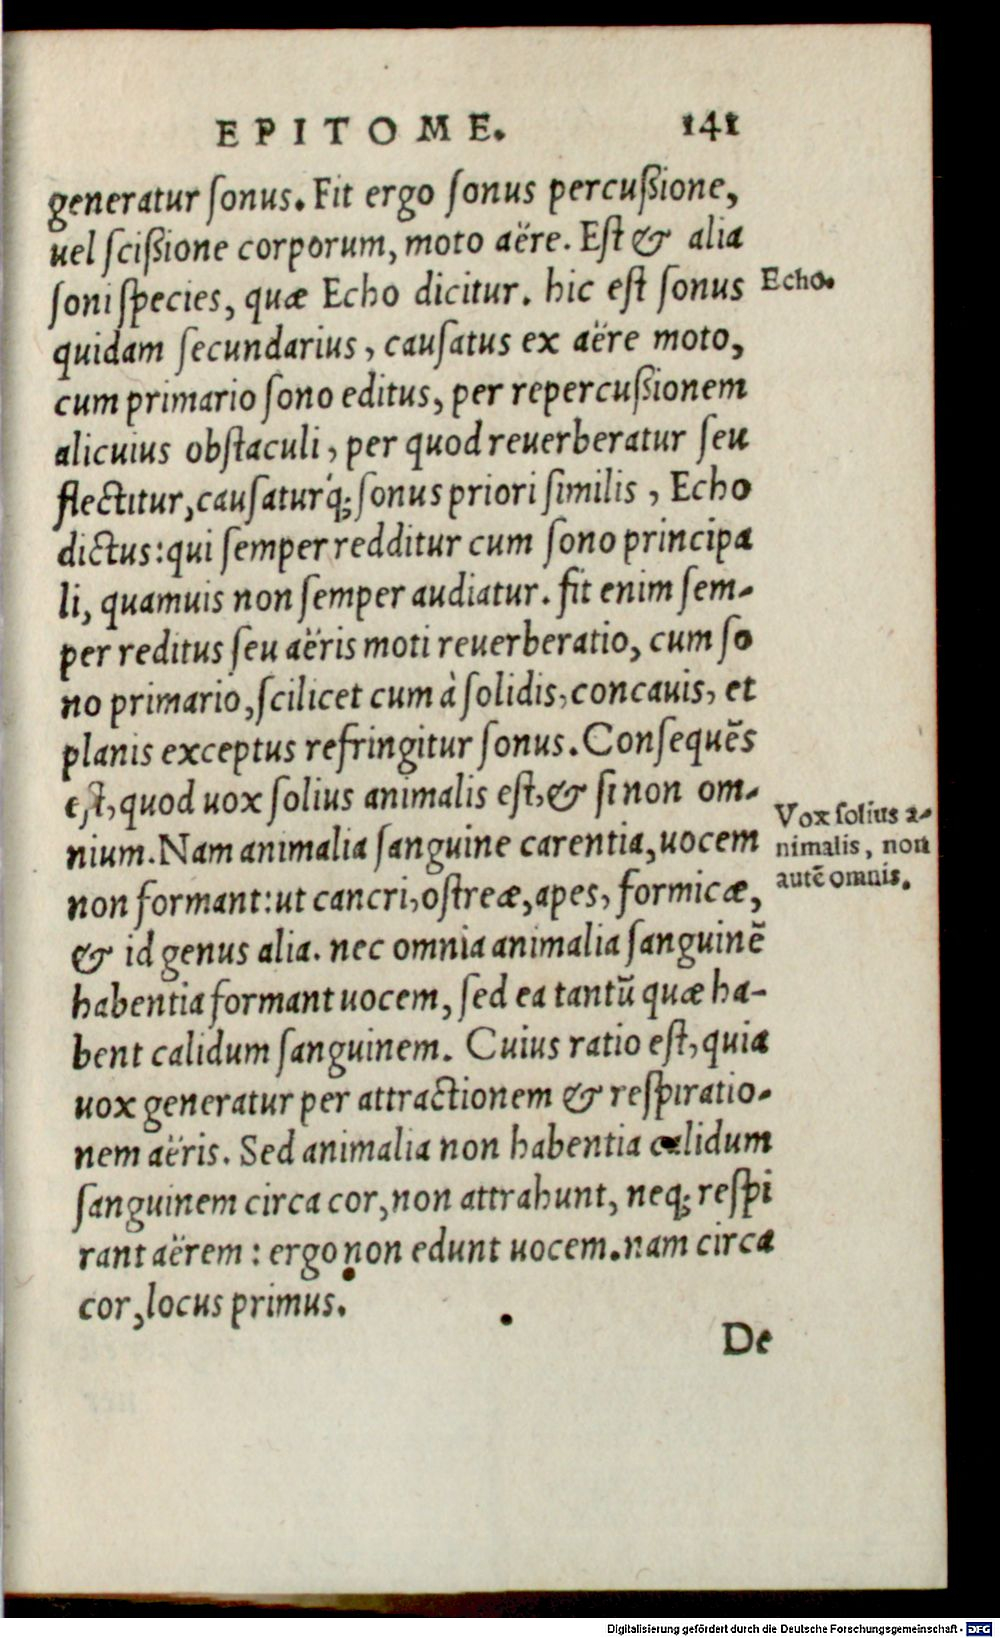 EPITOME. 141
generatur ſonus. Fit ergo ſonus percußione,
uel ſcißione corporum, moto aëre. Eſt & alia
ſoni ſpecies, quæ Echo dicitur. hic eſt ſonus
Echo.
quidam ſecundarius, cauſatus ex aëre moto,
cum primario ſono editus, per repercußionem
alicuius obſtaculi, per quod reuerberatur ſeu
flectitur, cauſaturq́; ſonus priori ſimilis, Echo
dictus: qui ſemper redditur cum ſono principa
li, quamuis non ſemper audiatur. fit enim ſem-
per reditus ſeu aëris moti reuerberatio, cum ſo
no primario, ſcilicet cum à ſolidis, concauis, et
planis exceptus refringitur ſonus. Conſequẽs
eſt, quod uox ſolius animalis eſt, & ſi non om-
nium. Nam animalia ſanguine carentia, uocem
Vox ſolius a-
nimalis, non
autẽ omnis.
non formant: ut cancri, oſtreæ, apes, formicæ,
& id genus alia. nec omnia animalia ſanguinẽ
habentia formant uocem, ſed ea tantũ quæ ha-
bent calidum ſanguinem. Cuius ratio eſt, quia
uox generatur per attractionem & reſpiratio-
nem aëris. Sed animalia non habentia calidum
ſanguinem circa cor, non attrahunt, neq; reſpi
rant aërem: ergo non edunt uocem. nam circa
cor, locus primus.
De
Digitalisierung gefördert durch die Deutsche Forschungsgemeinschaft - DFG